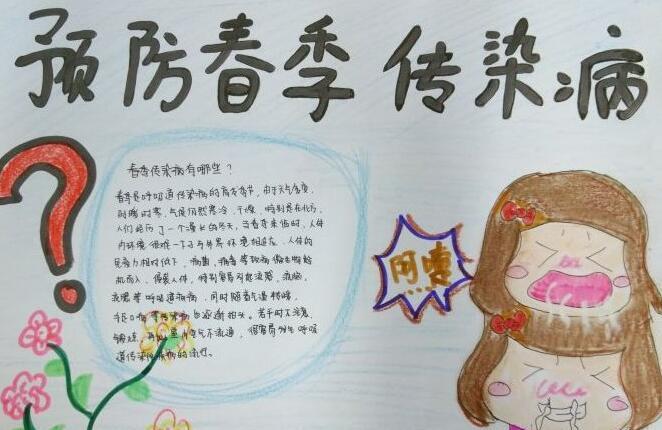 预防春季传染病
?
春季传染病有哪些?
春季是呼吸道传染病的高发季节,由于天气多变,
时暖时寒,气候仍然寒冷、干燥,特别是在北方,
人们经历了一个漫长的冬天,当春季来临时,人体
内环境很难一下子与外界环境相适应,人体的
免疫力相对低下,病菌、病毒等致病
机而入,侵袭人体,特别容易引起流感、流脑、
等呼吸道疾病,同时随着气温
空气不流通,很容易发生呼吸
道传染性疾病的流行。
阿嚏